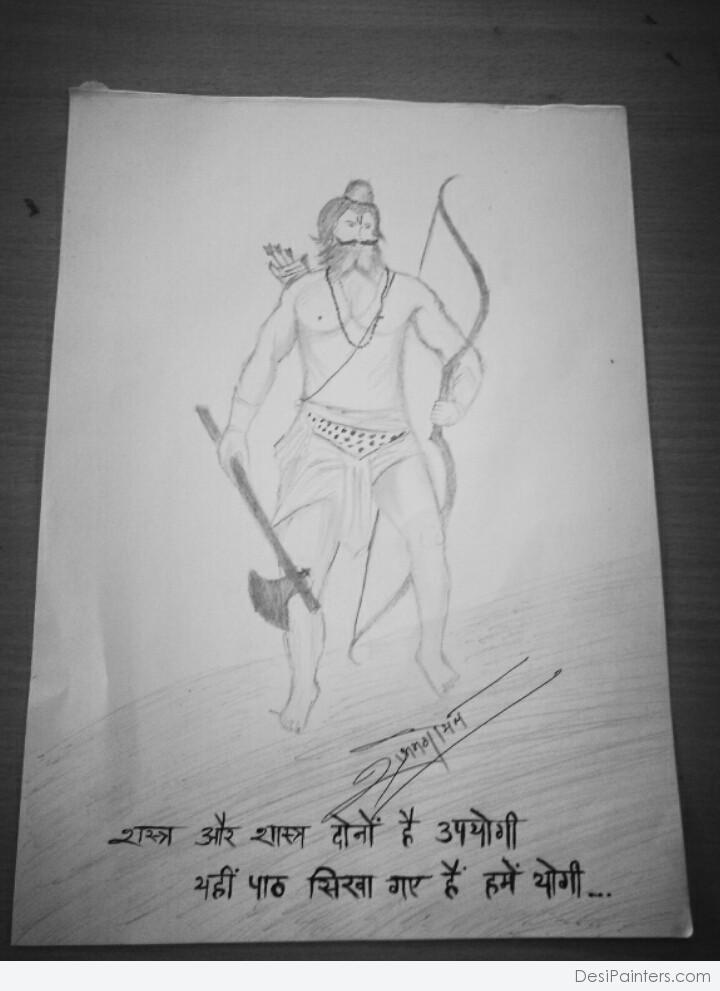 शस्त्र और शास्त्र दोनों है उपयोगी
यहीं पाठ सिखा गए हैं हमें योगी...
DesiPainters.com